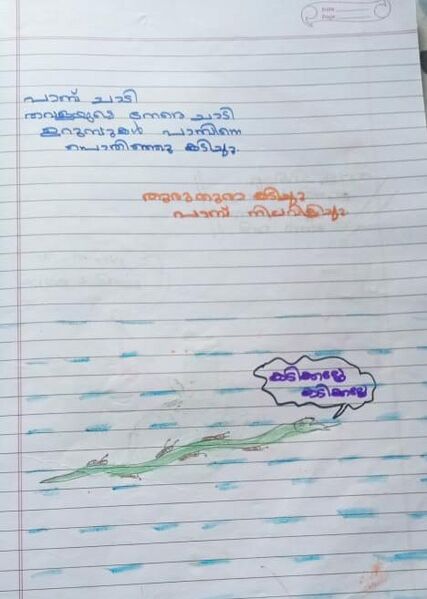 പാമ്പ് ചാടി
തവളയുടെ നേരെ ചാടി
ഉറുമ്പുകൾ പാമ്പിനെ
പൊതിഞ്ഞു കടിച്ചു.
തുരുതുരാ കടിച്ചു
പാമ്പ് നിലവിളിച്ചു
കടിക്കല്ലേ
കടിക്കല്ലേ